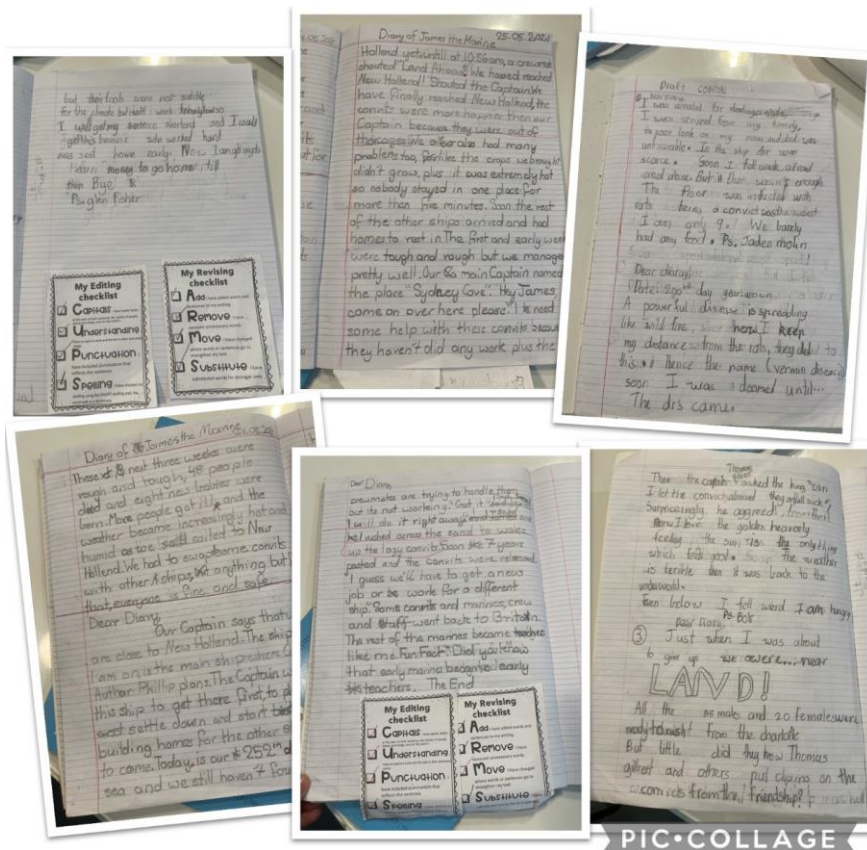 but their tools were not suitible
for the climate but
I will get my sentence shortend and I could
because who worked hard
was sent home early. Now I am going to
return money to go home, till
then Bye
My Editing
checklist
Capitals
Understanding
Punctuation
have included punctuation that
reflects the sentence.
Spelling
My Revising
checklist
Add
sentences to my writing.
Remove
removed unnecessary words.
Move I have changed
where words or sentences go to
strengthen my text.
Substitute I have
Diary of James the Marine 25.05.2020
Holland yet until at 10:55am, a crewmate
shouted "Land Ahoooy! We hoored reached
New Hollend! Shouted the Captain. We
have finally reached New Hollend, the
convits were more happier then our
Captain because they were out of
the cages. We also had many
problems too, like the crops we brought
didn't grow, plus it was extremely hot
so nobody stayed in one place for
more than five minutes. Soon the rest
of the other ships arrived and had
homes to rest in. The first and early week
were tough and rough but we managed
pretty well. Our main Captain named
the place "Sydney Cove". "Hey James
come on over here please". I need
some help with these convits becaus
they haven't did any work plus the
Draft
I was arrested for
I was serived from my family,
a poor look on my mom and dad was
unbivable. In the ship Air was
scarce. Soon I fell weak, afraid
and alone. But if that wasn't enough
The floor was infected with
rats being a convict was the worst
I am only 9. We barely
had any food. Ps. Jaden molin
Dear diary,
Date: 200th day year unown
A powerful disease is spreading
like wild fire, how I keep
my distance from the rats, they did
this hence the name (vermin diseas
soon I was doomed until...
The drs came.
Diary of James the Marine
These next three weeks were
rough and tough, 48 people
died and eight new babies were
born. More people got ill and the
weather became increasingly hot and
humid as we sailed to New
Hollend. We had to swap some convits
with other ships, but anything but
that, everyone is fine and safe.
Dear Diary,
Our Captain says that
are close to New Hollend. The ship
I am on is the main ship where C
Author Phillip plans. The Captain w
this ship to get there first, to p
settle down and start
building homes for the other s
to come. Today is our 252nd d
sea and we still haven't fou
Dear Diary,
crewmates are trying to handle them
but its not working." Got it
I will do it right away"
he rushed across the sand to wake
up the lazy convits. Soon 7 years
pasted and the convits were released
I guess we'll have to get a new
job or work for a different
ship. Some convits and marines, crew
and staff went back to Britain.
The rest of the marines became
like me. Fun Fact: Did you know
that early marines becamed early
teachers. The End
My Editing
checklist
Capitals
Understanding
Punctuation
have included punctuation that
reflects the sentence.
Spelling
My Revising
checklist
Add
sentences to my writing.
Remove
removed unnecessary words.
Move I have changed
where words or sentences go to
strengthen my text.
Substitute I have
Then the captain asked the king "can
I let the convicts aboard they are all sick"
Surprisingly he aggreed,
Now I love the golden heavenly
feeling the sun was the only thing
which feels good. So if the weather
is terible then it was back to the
underworld.
Even below I fell weird I am hungry
Ps. Bob
Dear Diary
③ Just when I was about
to give up we were... near
LAND!
All the males and 20 females were
from the charlotte
But little did they know Thomas
gilbert and others put chains on the
convicts from the friendship?
PIC•COLLAGE